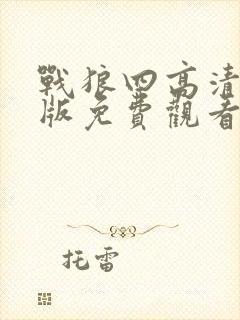 戰狼四高清
版免費觀看
托雷